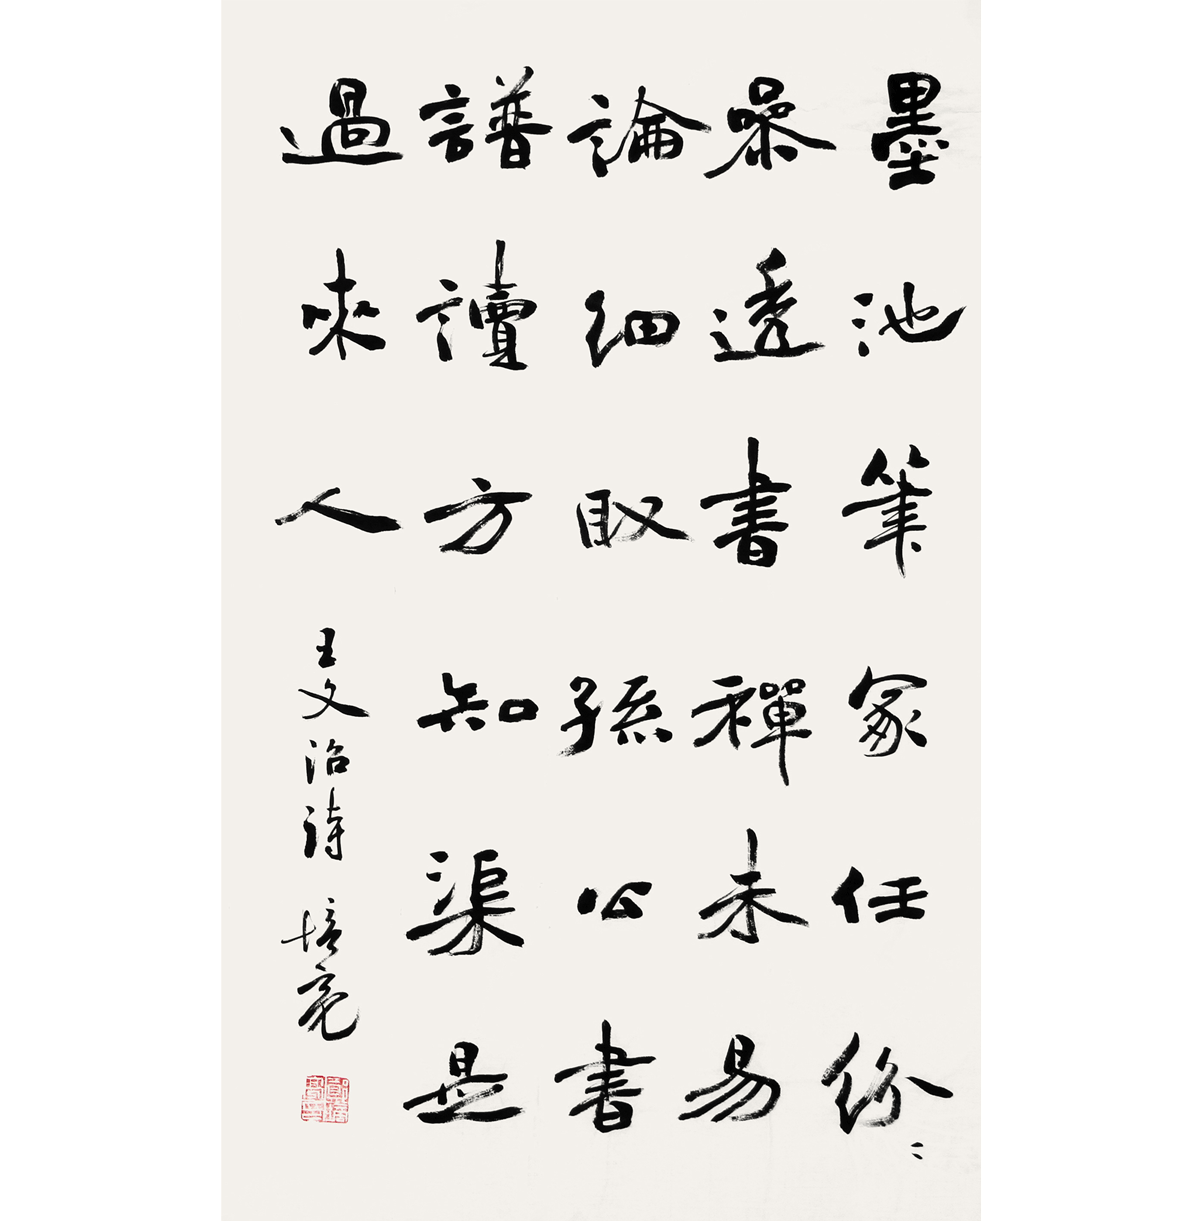 墨池筆冢任紛〻
桑透書禪未易
論細取孫公書
譜讀方知渠是
過來人
王文治詩 培亮